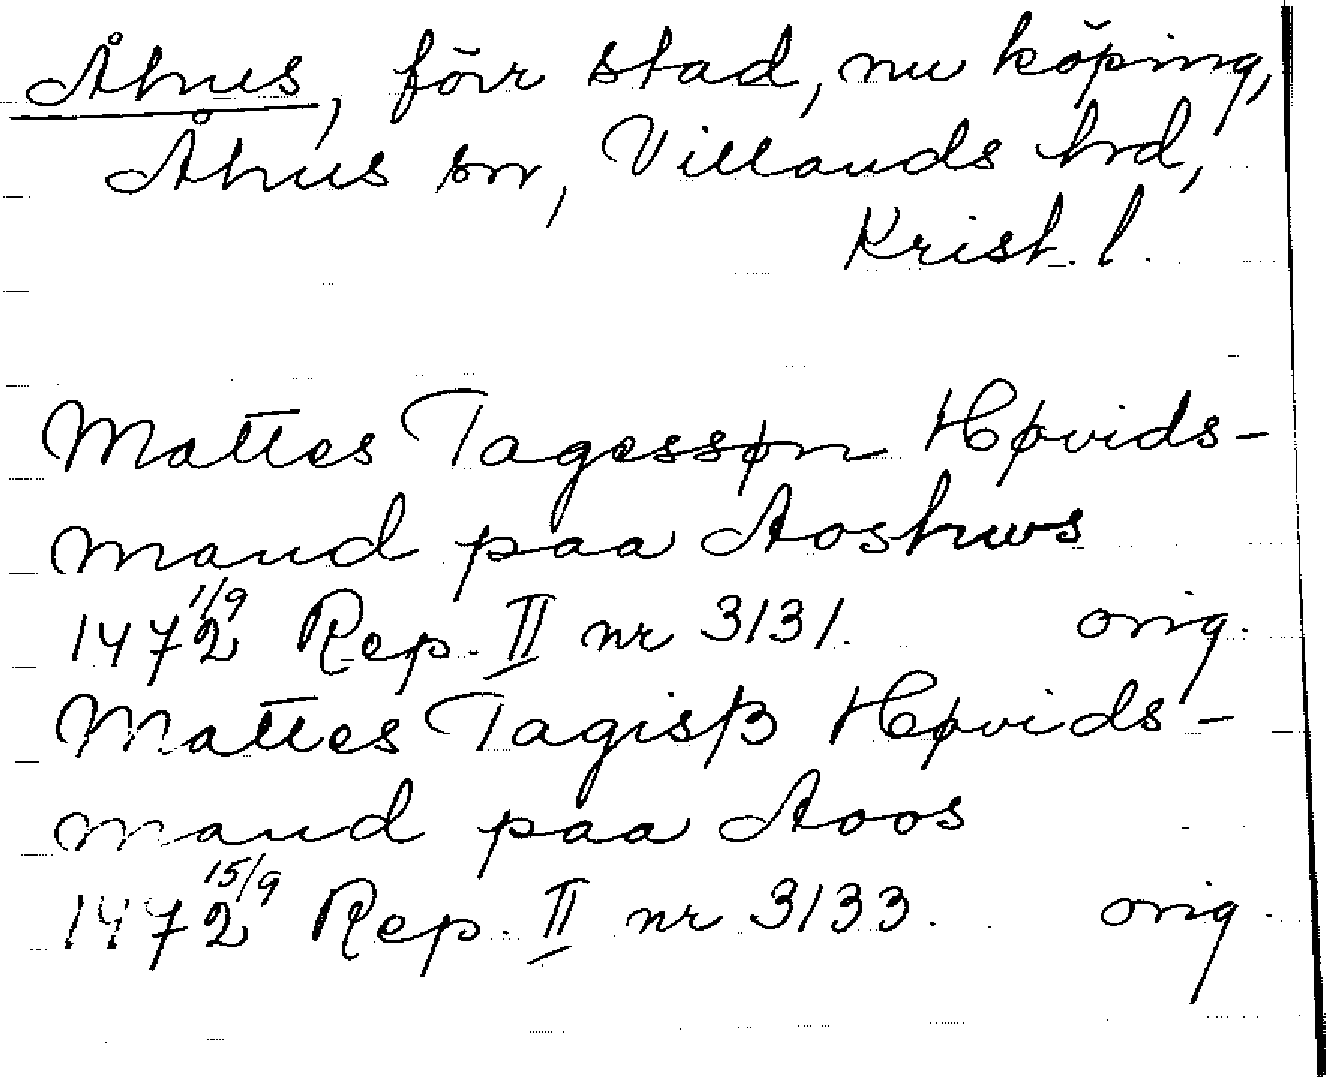 Åhus, förr stad, nu köping,
Åhus sn, Villands hrd,
Krist. l.
Mattes Tagessøn Høvids-
mand paa Aoshws
1472 1/9 Rep. II nr 3131. orig.
Mattes Tagisß Høvids-
mand paa Aoos
1472 15/9 Rep. II nr 3133. orig.